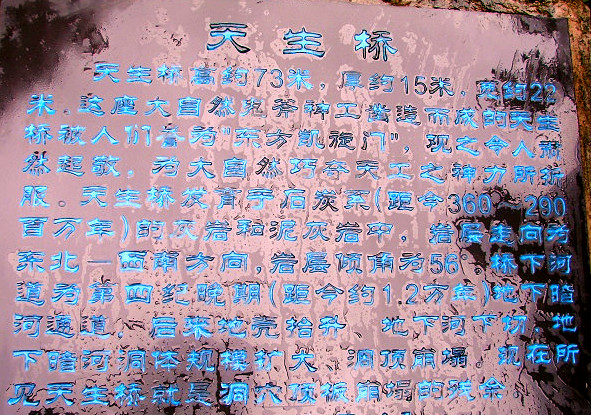 天生桥
天生桥高约73米，厚约15米，宽约22
米。这座大自然鬼斧神工凿造而成的天生
桥被人们誉为"东方凯旋门"，观之令人肃
然起敬，为大自然巧夺天工之神力所折
服。天生桥发育于石炭系(距今360～290
百万年)的灰岩和泥灰岩中，岩层走向为
东北—西南方向，岩层倾角为56°。桥下河
道为第四纪晚期(距今约1.2万年)地下暗
河通道，后来地壳抬升、地下河下切，地
下暗河洞体规模扩大、洞顶崩塌。现在所
见天生桥就是洞穴顶板崩塌的残余。